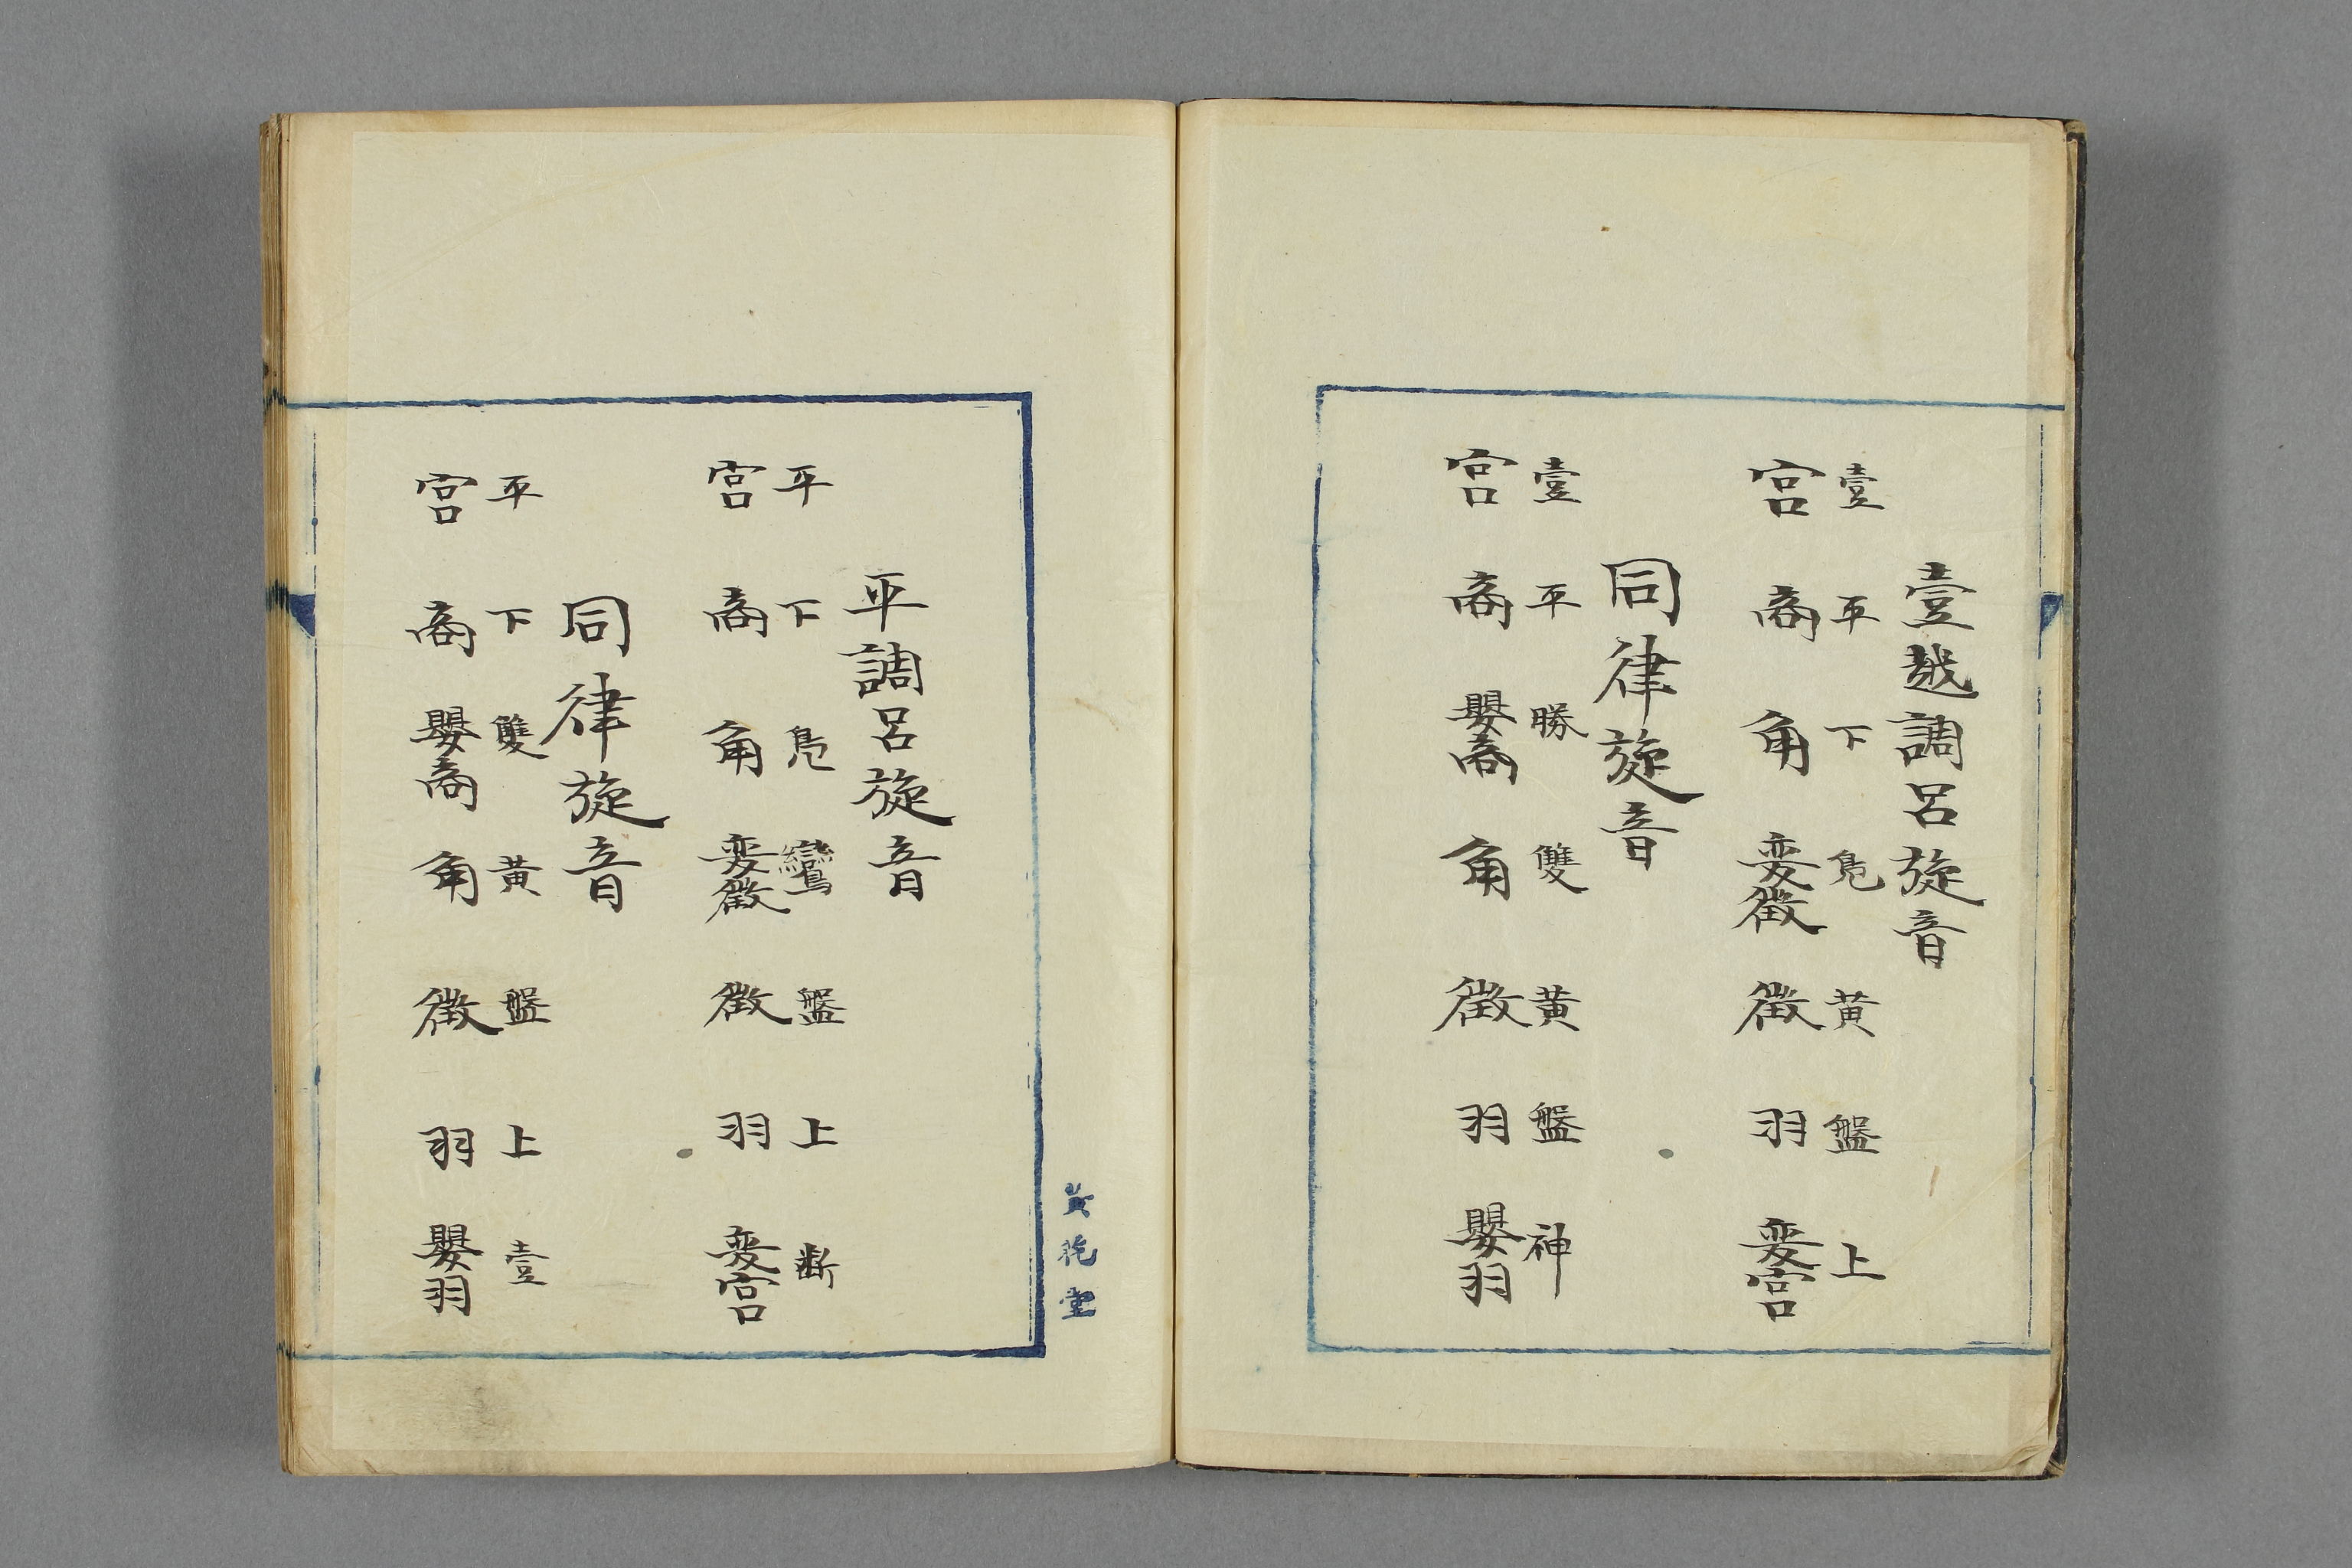 壹越調呂旋音
壹 平 下 鳬 黄 盤 上
宮 商 角 変徴 徴 羽 変宮
同律旋音
壹 平 勝 雙 黄 盤 神
宮 商 嬰商 角 徴 羽 嬰羽
黄花堂
平調呂旋音
平 下 鳬 鸞 盤 上 断
宮 商 角 変徴 徴 羽 変宮
同律旋音
平 下 雙 黄 盤 上 壹
宮 商 嬰商 角 徴 羽 嬰羽